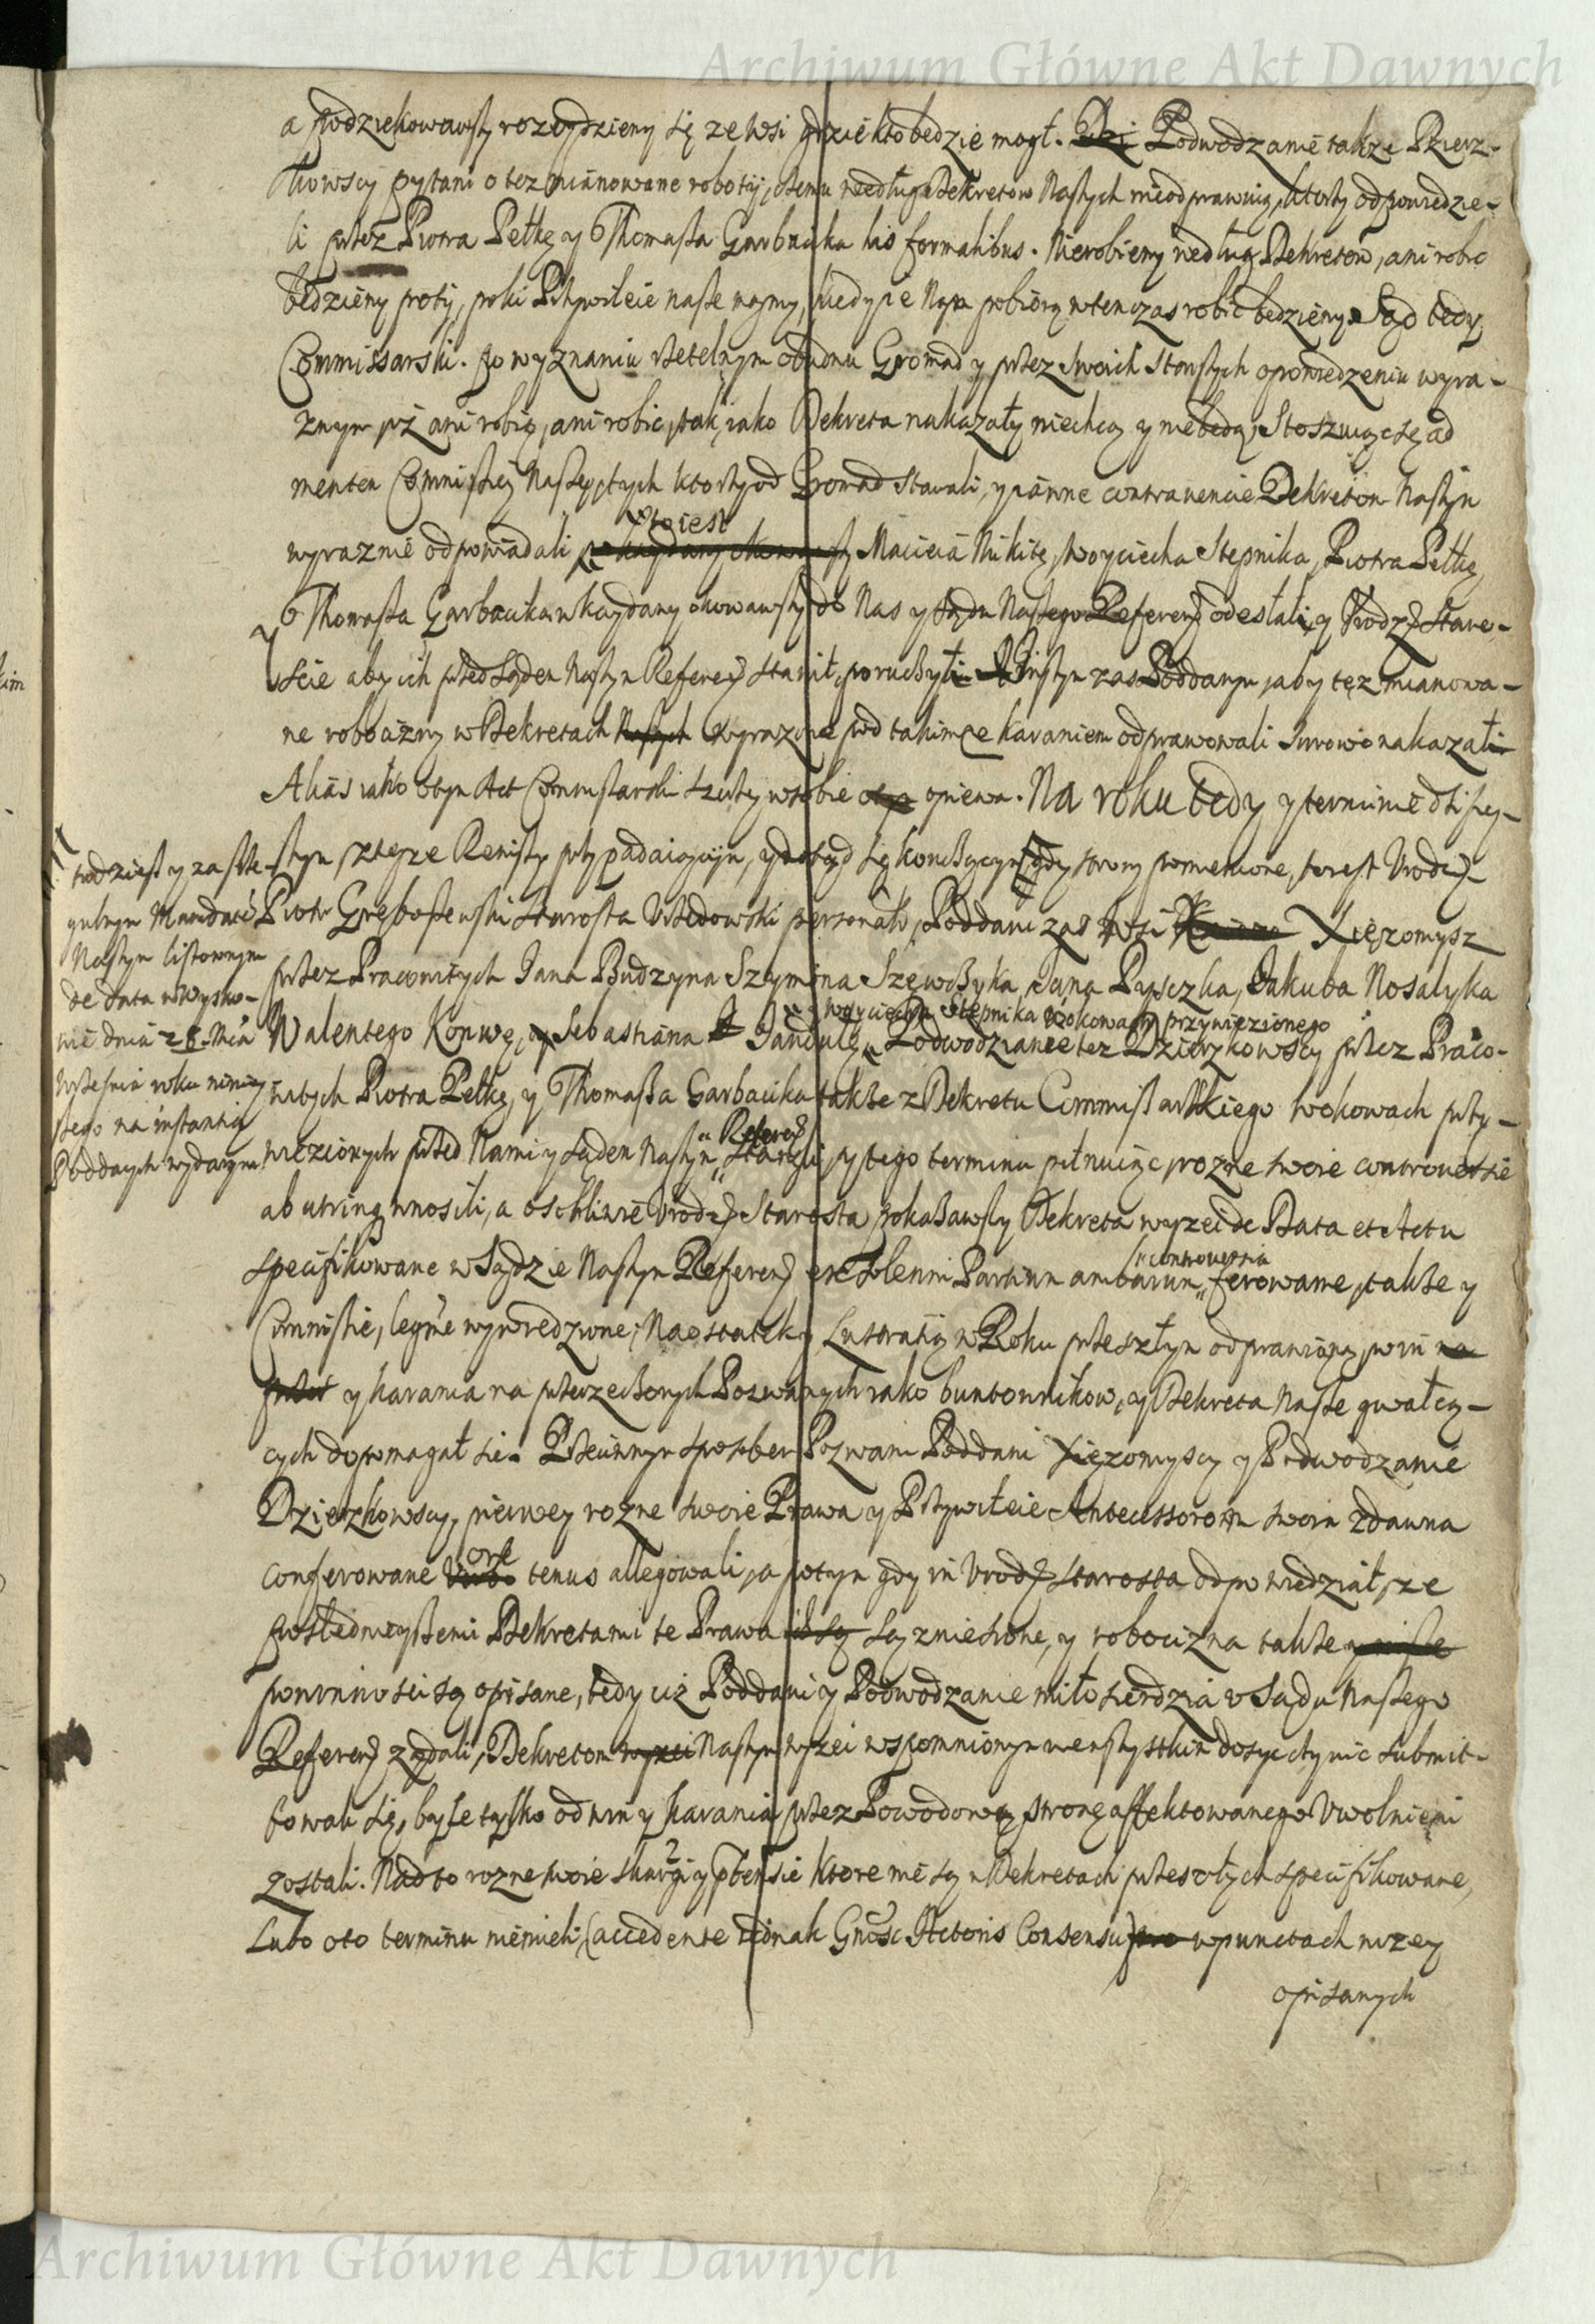 Archiwum Główne Akt Dawnych
a podziękowawszy rozeydziemy się ze wsi gdzie kto będzie mogł. Podwodzanie także Dzierz-
kowscy pytani o też mianowane roboty, czemu według Dekretow Naszych nieodprawuią, ktorzy odpowiedzie-
li przez Piotra Petkę y Thomasza Garbacika his formalibus. Nierobiemy według Dekretow, ani robić
będziemy poty, poki Przywileie nasze mamy, kiedy ie Nam pobiorą wtenczas robić będziemy. Sąd tedy
Commissarski po wyznaniu rzetelnym obudwu Gromad y przez swoich Starszych opowiedzeniu wyra-
znym iż ani robią, ani robić, tak, iako Dekreta nakazały niechcą y niebędą, Stoszuiąc się ad
mentem Commissiey Naszey, tych ktorzy od Gromad stawali, y iawne contravencie Dekretom Naszym
wyraznie odpowiadali to iest Macieia Nikitę, Woyciecha Stepnika, Piotra Petkę,
Thomasza Garbacika w kaydany okowawszy do Nas y Sądu Naszego Referen: odesłali, y Urodz: Staro-
ście aby ich przed Sądem Naszym Referen: stawił, poruczyli Wszystkim zas Poddanym, aby też mianowa-
ne robocizny w Dekretach Naszych wyrazone pod takimże karaniem odprawowali surowo nakazali
Alias iako o tym Act Commissarski szerzey w sobie opiewa. Na roku tedy y terminie dzisiey-
szym z teyze Remissy przypadaiącym, gdy strony pomienione, to iest Urodz:
Piotr Gręboszewski Starosta Urzędowski personaliter, Poddani zas wsi Xięzomysz
przez Pracowitych Jana Budzyna Szymona Szewczyka, Jana Pyszczka, Jakuba Nosalyka
Walentego Konwę, Sebastiana Jandułę, y Woyciecha Stepnika w okowach przywiezionego Podwodzanie tez Dzierzkowscy przez Praco-
witych Piotra Petkę, y Thomasza Garbacika także z Dekretu Commissarskiego w okowach przy-
wiezionych przed Nami y Sądem Naszym Referen: stanęli, y tego terminu pilnuiąc rozne swoie controversie
ab utrinq wnosili, a osobliwie Urodz: Starosta pokazawszy Dekreta wyzei de Data et Actu
specifikowane w Sądzie Naszym Referen: ex solenni Partium ambarum controversia ferowane, także y
Commissie, legitime wywiedzione; Na ostatek y Lustratią w Roku przeszłym odprawioną, win
y karania na przerzeczonych Pozwanych iako buntownikow, y Dekreta Nasze gwałcą-
cych dopomagał sie. Przeciwnym sposobem Pozwani Poddani Xięzomyscy y Podwodzanie
Dzierzkowscy, pierwey rozne swoie Prawa y Przywileie Antecessorom swoim zdawna
conferowane ore tenus allegowali, a potym gdy im Urodz: Starosta odpowiedział, że
posledniejszemi Dekretami te Prawa są zniesione, y robocizna także
powinności są opisane, tedy ciż Poddani y Podwodzanie miłosierdzia u Sądu Naszego
Referen: ządali, Dekretom Naszym wyzei wspomnionym we wszystkim dosyc czynić submit-
towali się, byle tylko od win y karania przez Powodową stronę affektowanego Uwolnieni
zostali. Nadto rozne swoie skargi y ptensie ktore nie są w Dekretach przeszłych specifikowane,
Lubo oto terminu niemieli, (accedente iednak Gnosc Actoris Consensu) w punctach nizey
opisanych
tudziesz y za szcze-
gulnym Mandatem
Naszym listownym
de data w Wyszko-
wie dnia 28. Mca
Wrzesnia roku niniey-
szego na instantią
Poddanych wydanym
Archiwum Główne Akt Dawnych